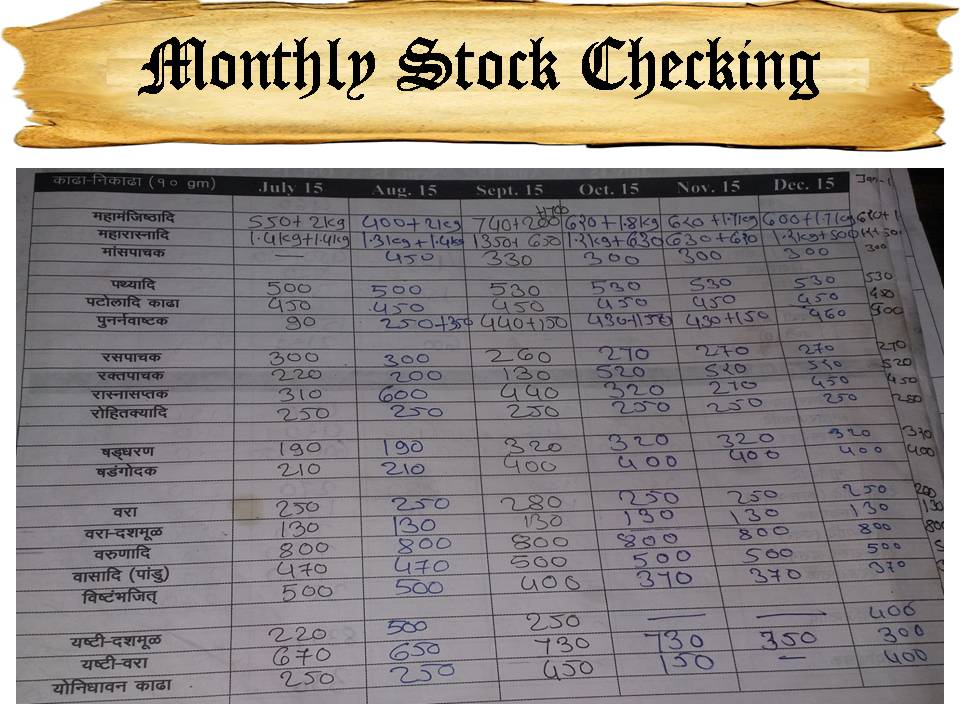 Monthly Stock Checking
काढा-निकाढा (१० gm) July 15 Aug. 15 Sept. 15 Oct. 15 Nov. 15 Dec. 15 Jan-1
महामंजिष्ठादि 550+2kg 400+2kg 740+200 620+1.8kg 620+1.7kg 600+1.7kg
महारास्नादि 1.4kg+1.4kg 1.31kg+1.4kg 1350+650 1.21kg+630 630+620
मांसपाचक — 450 330 300 300 300 300
पथ्यादि 500 500 530 530 530 530 530
पटोलादि काढा 450 450 450 450 450 450 450
पुनर्नवाष्टक 90 250+350 440+150 430+150 430+150 460
रसपाचक 300 300 260 270 270 270 270
रक्तपाचक 220 200 130 520 520 520 520
रास्नासप्तक 310 600 440 320 270 450 450
रोहितक्यादि 250 250 250 250 250 250 250
षड्धरण 190 190 320 320 320 320 320
षडंगोदक 210 210 400 400 400 400 400
वरा 250 250 280 250 250 250 200
वरा-दशमूळ 130 130 130 130 130 130 130
वरुणादि 800 800 800 800 800 800 800
वासादि (पांडु) 470 470 500 500 500 500
विष्टंभजित् 500 500 400 370 370 370
यष्टी-दशमूळ 220 500 250 — — 400
यष्टी-वरा 670 650 730 730 350 300
योनिधावन काढा 250 250 450 150 — 400